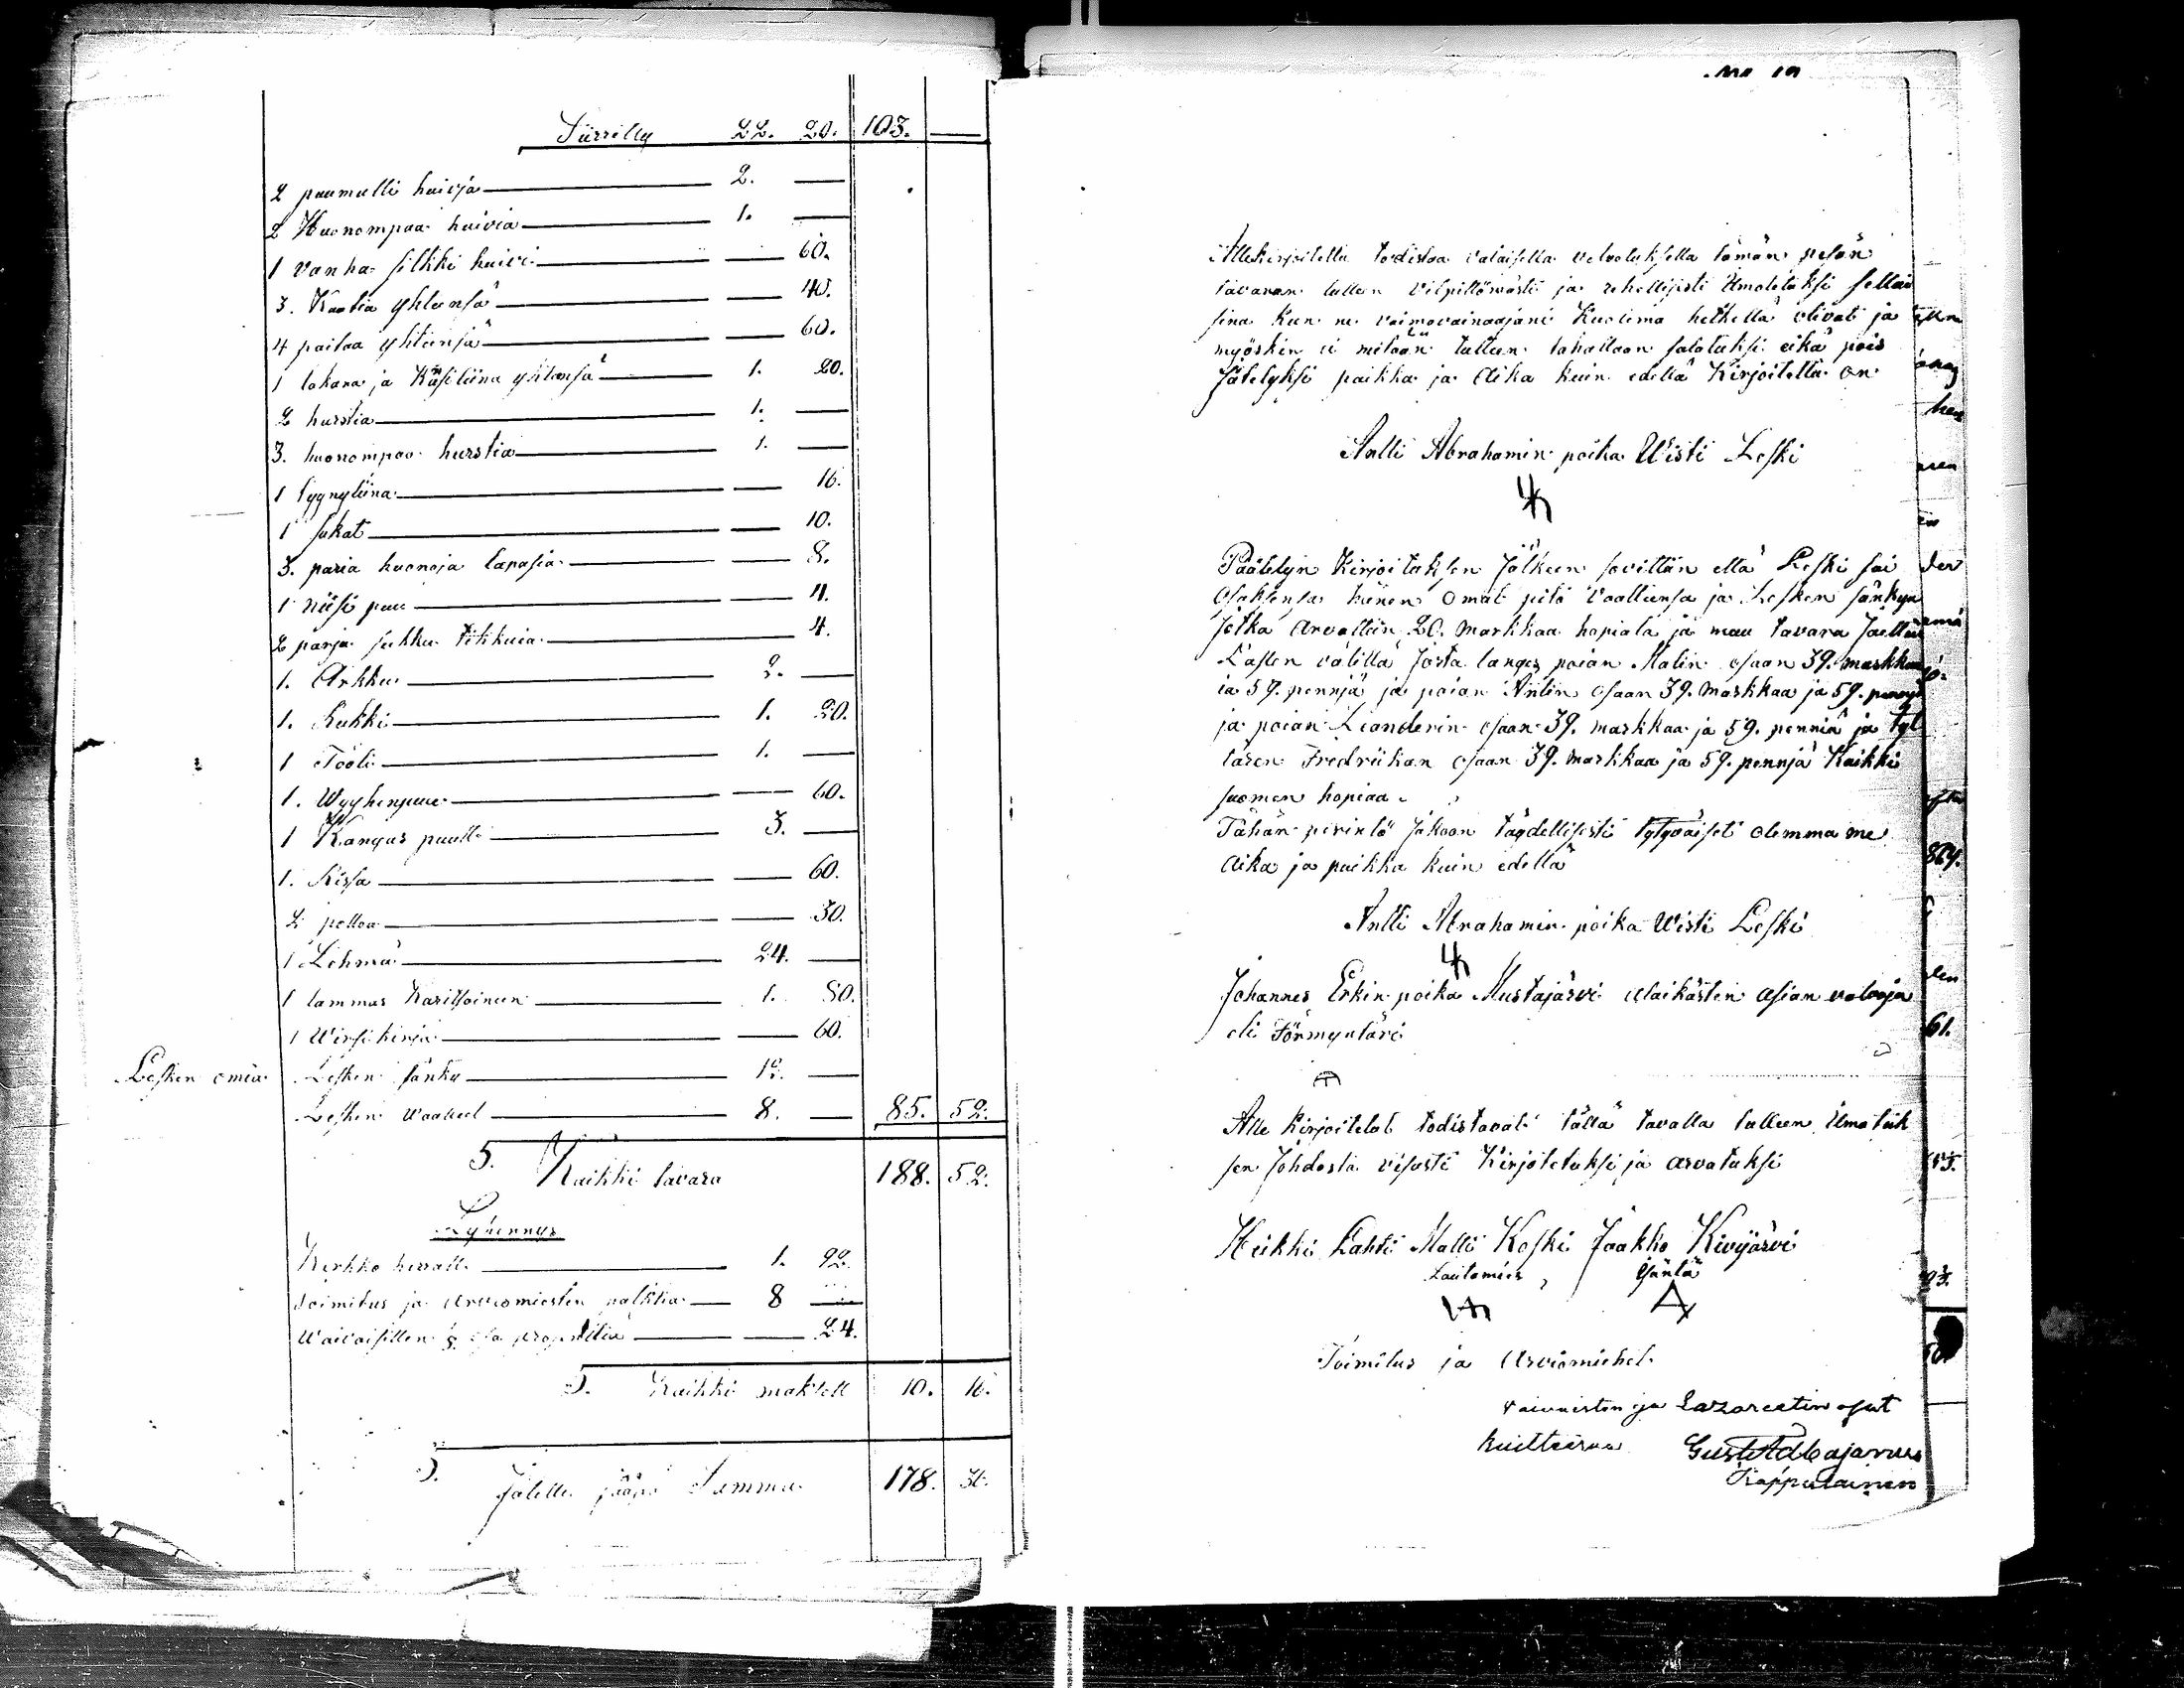 Siirretty 22. 20. 103. —
2 puumulli huivja — 2. —
2 Huonompaa huivia — 1. —
1 vanha silkki huivi — — 60.
3. Kaatia yhteensä — — 40.
4 paitaa yhteensä — — 60.
1 lakana ja Käsiliina yhteensä — 1. 20.
2 hurstia — 1. —
3. huonompaa hurstia — 1. —
1 Pyynyliina — — 16.
1 sukat — — 10.
3. paria huonoja lapasia — — 8.
1 niisi puu — — 4.
2 parja sukka tikkuia — — 4.
1. Arkku — 2. —
1. Rukki — 1. 20.
1 Tooli — 1. —
1. Wyyhenpuu — — 60.
1 Kangas puutt — 3. —
1. Kissa — — 60.
2 peltoa — — 30.
1 Lehmä — 24. —
1 lammas karittoineen — 1. 80.
1 Wirsikirja — — 60.
Lesken omia Lesken sänky — 12. —
Lesken Waatteet — 8. — 85. 52.
S. Kaikki tavara 188. 52.
Lyhennys
Kirkko herralle — 1. 92.
Toimitus ja Arviomiesten palkka — 8 —
Waivaisillen — — 24.
S. Kaikki maksett 10. 16.
S. Jälelle jääpi Summa 178. 36.
Allekirjoitettu todistaa valaisella velvotuksella tämän pesän
tavaran tulleen vilpittömästi ja rehellisesti Ilmotetuksi sellai
sina kun ne vaimovainaajani Kuolema hetkellä olivati ja
myöskin ei mitään tulleen tahallaan salatuksi eikä pois
jätetyksi paikka ja Aika kuin edellä Kirjoitettu on
Antti Abrahamin poika Wisti Leski
Päätetyn Kirjoituksen Jälkeen sovittiin että Leski sai
Osaksensa hänen omat pito Vaatteensa ja Lesken sängyn
Jotka Arvattiin 20. Markkaa hopiata ja muu tavara Jaettiin
Lasten välillä Josta langes poian Matin osaan 39. markkaa
ia 59. pennjä ja poian Antin Osaan 39. Markkaa ja 59. pennjä
ja poian Leanderin osaan 39. markkaa ja 59. penniä ja tyt
tären Fredriikan Osaan 39. Markkaa ja 59. pennjä Kaikki
suomen hopiaa.
Tähän perintö Jakoon täydellisesti tytyväiset olemma me
Aika ja paikka kuin edellä
Antti Abrahamin poika Wisti Leski
Johannes Erkin poika Mustajärvi alaikästen Asian valvoja
eli Förmyntäri
Alle kirjoitetut todistavat tällä tavalla tulleen Ilmotuk
sen Johdosta visusti Kirjotetuksi ja arvatuksi
Heikki Lahti Matti Koski Jaakko Kivijärvi
Lautamies, Ysäntä
Toimitus ja Arviomiehet
vaivaisten ja Lazaretin osat
kuitteeraa Gust Ad Cajanus
Kappalainen
864.
61.